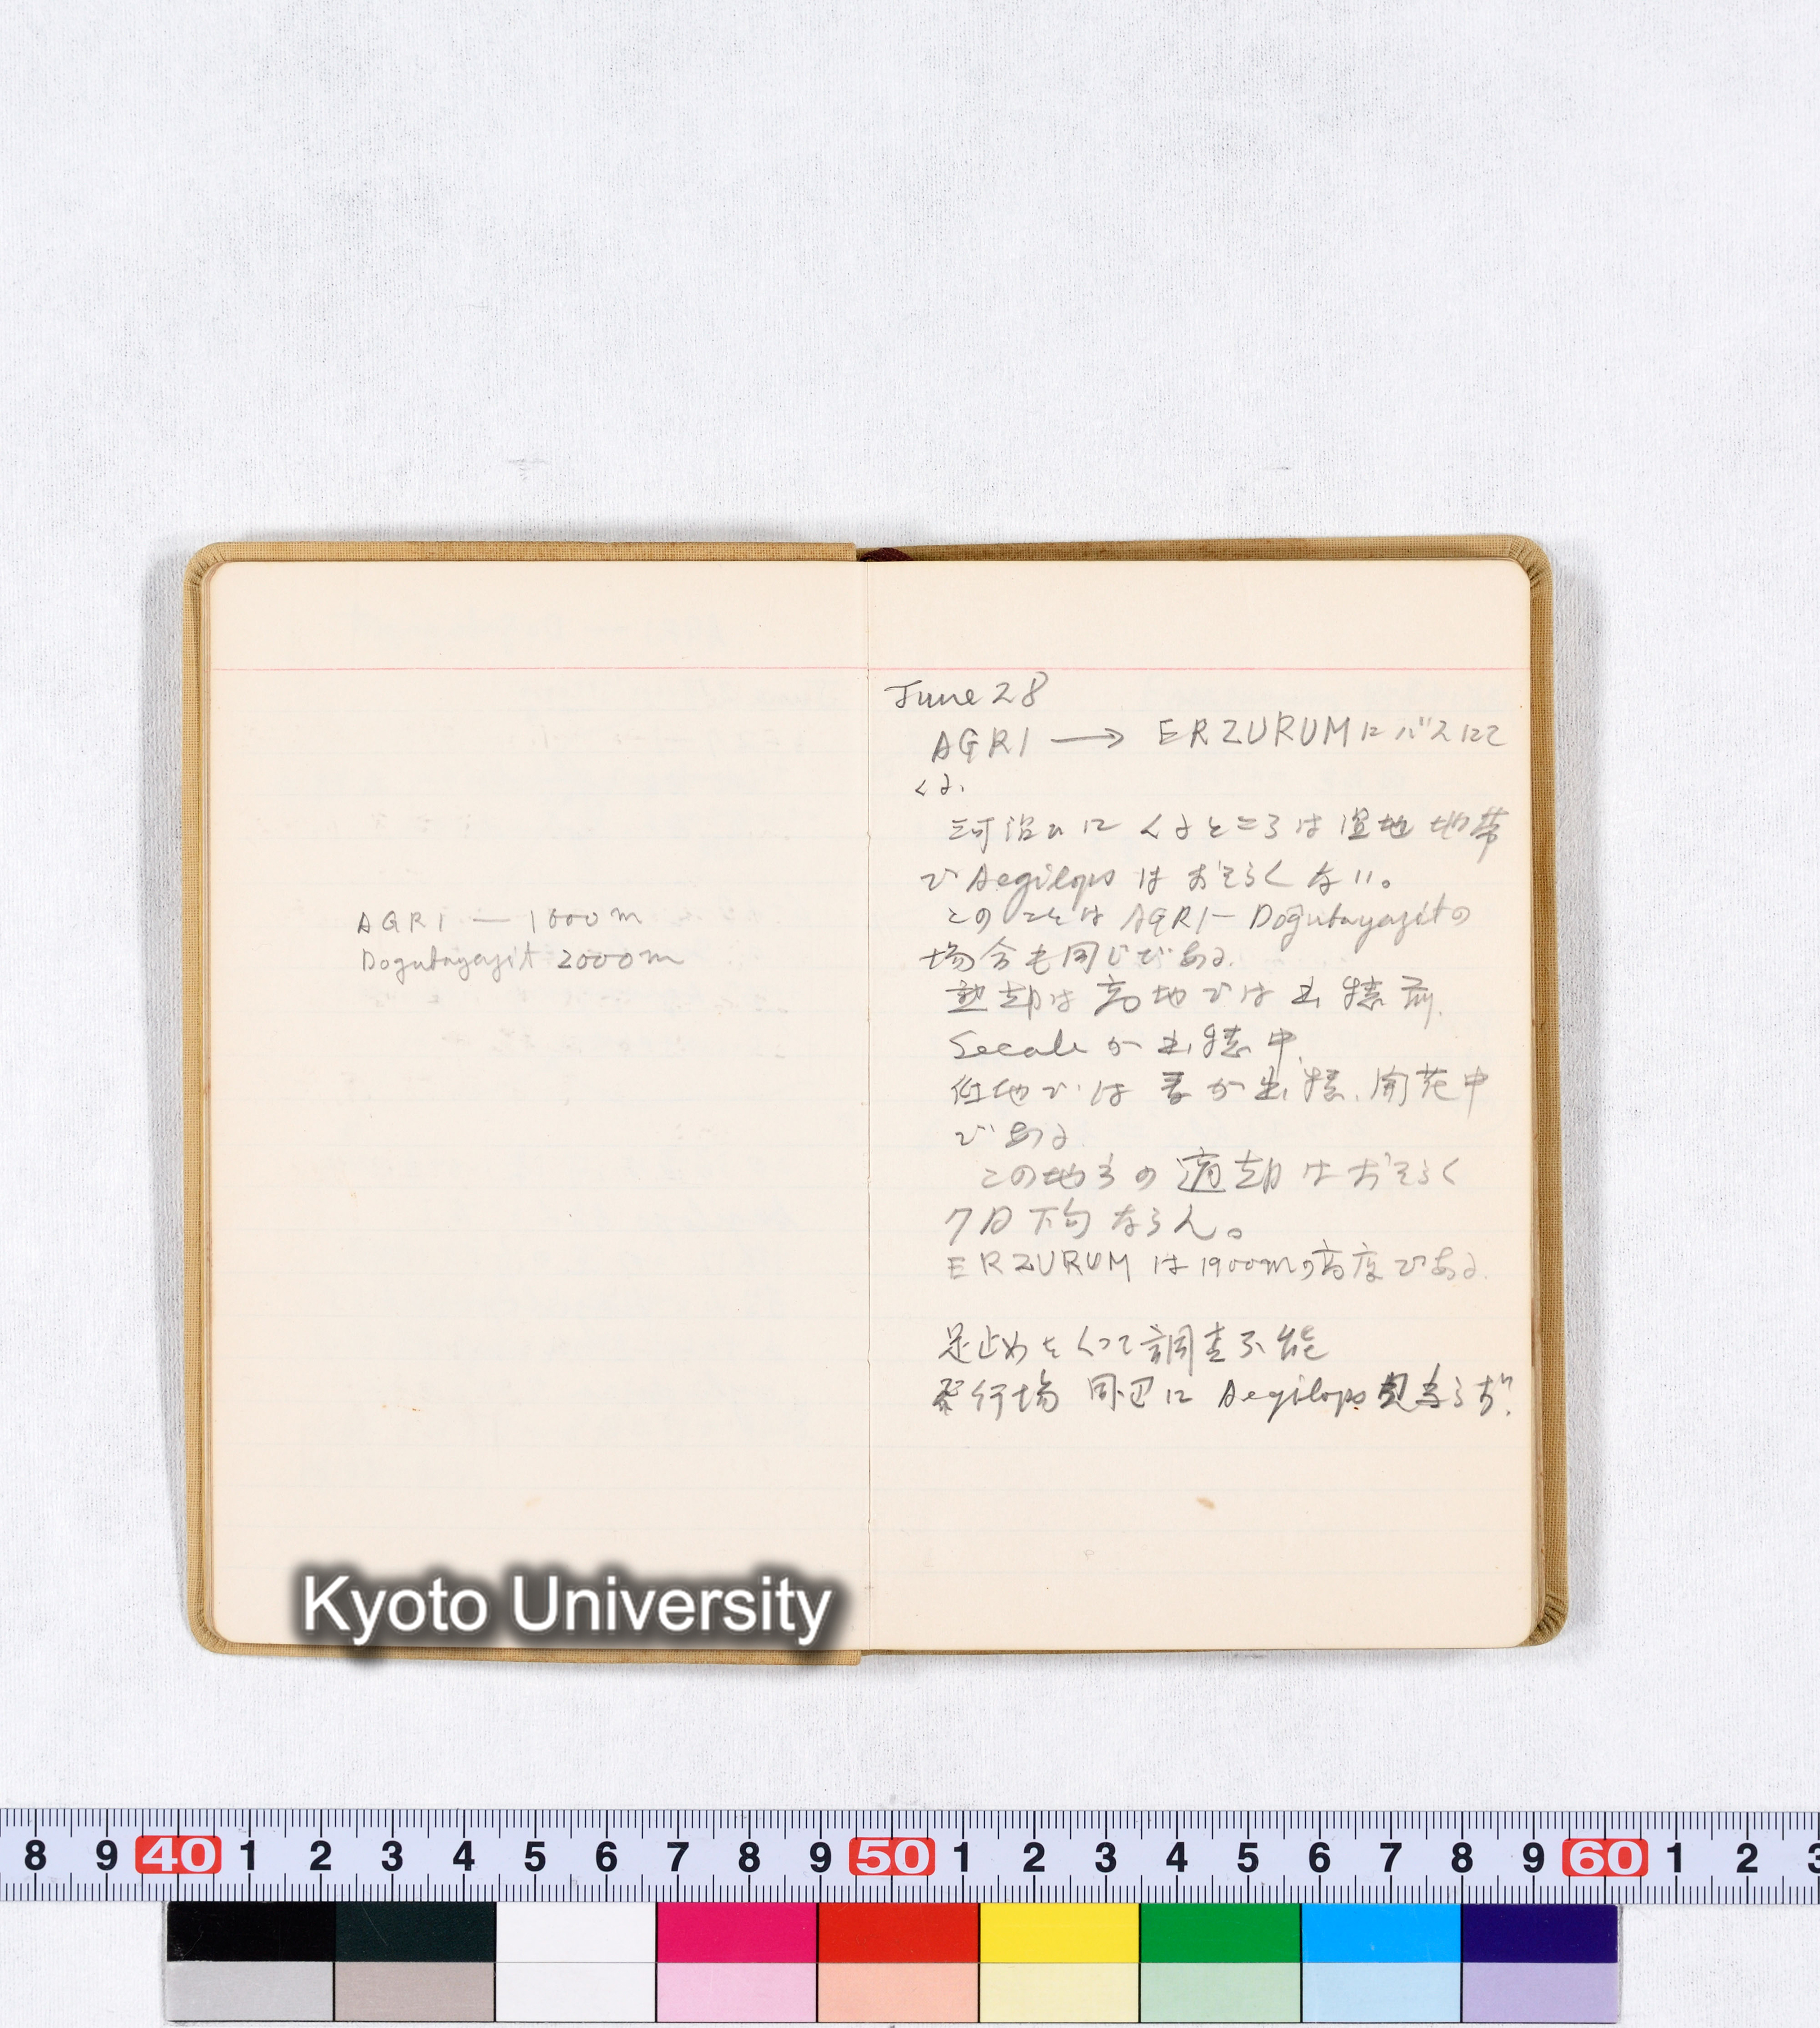 AGRI — 1600 m
Dogubayazit 2000 m
June 28
AGRI → ERZURUM に バスにて
くる.
河沿いに くるところは 湿地 地帯
で Aegilops は おそらく ない。
このことは AGRI — Doğubayazit の
場合も同じである.
熟期は 高地では 出穂前.
Secale が 出穂中.
低地では 麦が 出穂.開花中
である
この地方の 適期は おそらく
7月下旬 ならん。
ERZURUM は 1900mの高度である.
足止めをくって調査不能
飛行場 周辺に Aegilops 見当らず?
Kyoto University
8 9 40 1 2 3 4 5 6 7 8 9 50 1 2 3 4 5 6 7 8 9 60 1 2 3